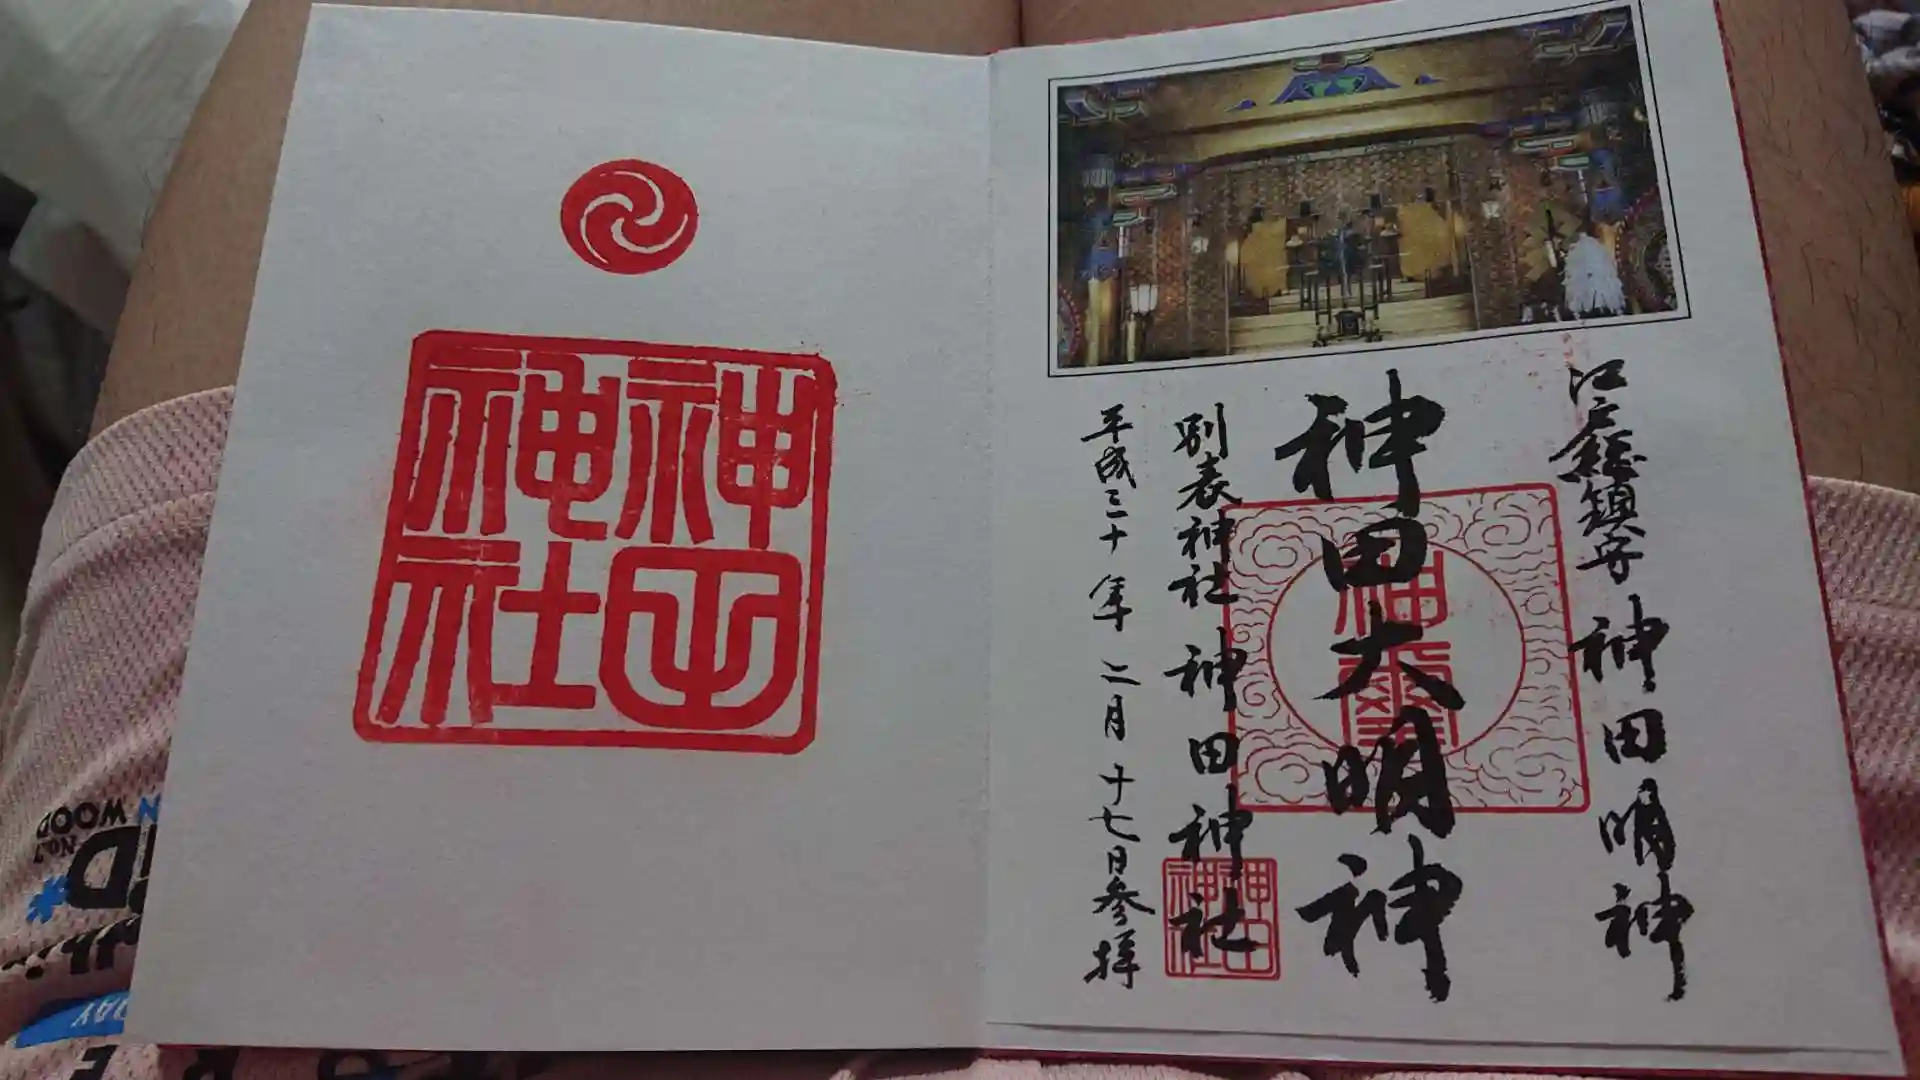 江戸総鎮守 神田明神
神田大明神
神璽
別表神社 神田神社
神田神社
平成三十年 二月 十七日参拝
神田
神社
WOOD
No.7
DAY